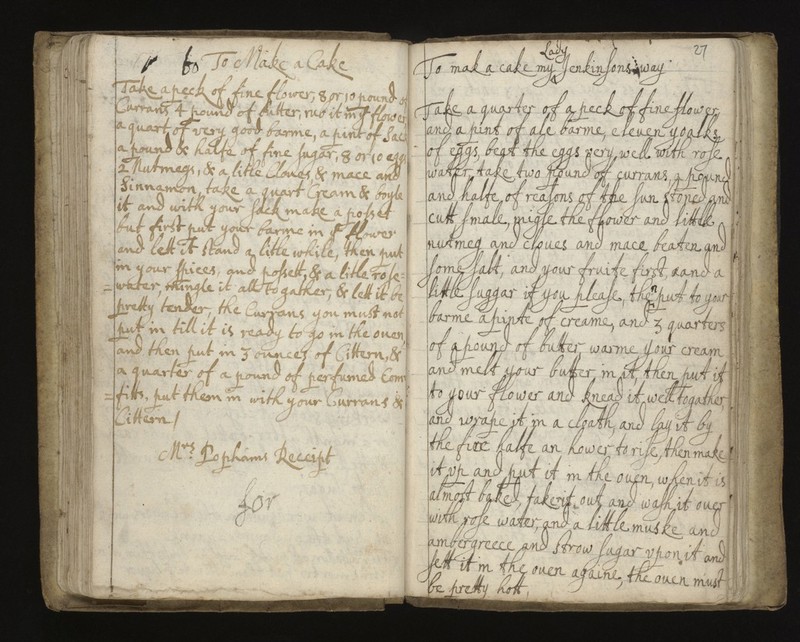 60 To Make a Cake
Take a peck of fine flower, 8 or 10 pound of
Currans, 4 pound of butter, rub it in yᵉ flower
a quart of very good barme, a pint of Sack
a pound & halfe of fine sugar, 8 or 10 eggs
2 Nutmegs, & a litle Cloves & mace and
Sinnamon, take a quart Cream & boyle
it and with your sack make a possett
but first put your barme in yᵉ flower
and lett it stand a litle while, then put
in your spices, and possett, & a litle rose-
=water, mingle it all togather, & lett it be
pretty tender, the Currans you must not
put in till it is ready to go in the oven
and then put in 3 ounces of Cittern, &
a quarter of a pound of perfumed Com
=fitts, put them in with your Currans &
Cittern /
Mʳˢ Pophams Receipt
for
27
To mak a cake my Lady Jenkinsons way
Take a quarter of a peck of fine flower
and a pint of ale barme, eleven yoalks
of eggs, beat the eggs very well with rose
water, take two pound of currans, a pound
and halfe of reasons of the sun stoned and
cutt smale, migse the flower and littel
nutmeg and cloves and mace beaten and
some salt, and your fruite first, aand a
little suggar if you please, then put to your
barme a pinte of creame, and 3 quarters
of a pound of butter warme your cream
and melt your butter in it, then put it
to your flower and knead it well togather
and wrape it in a cloath, and lay it by
the fire halfe an hower to rise, then make
it vp and put it in the oven, when it is
almost baked, take it out, and wash it over
with rose water, and a little muske and
ambergreece and strow sugar vpon it and
sett it in the oven againe, the oven must
be pretty hott,